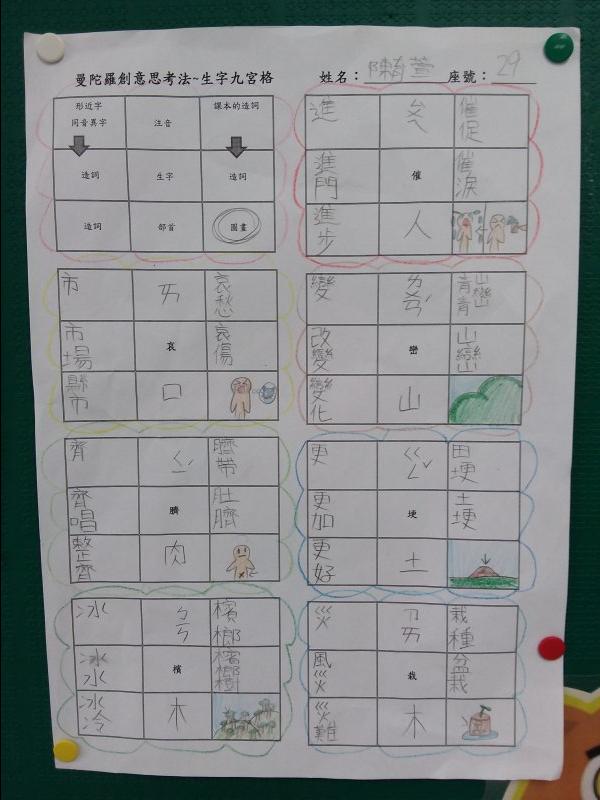 曼陀羅創意思考法~生字九宮格 姓名：陳育萱 座號：29
形近字
同音異字 注音 課本的造詞
造詞 生字 造詞
造詞 部首 圖畫
進 催促
進門 催 催淚
進步 人
市 ㄞ 哀愁
市場 哀 哀傷
縣市 口
變 ㄌㄢˊ 青山巒
改變 巒 山巒
變化 山
齊 ㄑㄧˊ 臍帶
齊唱 臍 肚臍
整齊 肉
更 ㄍㄥˇ 田埂
更加 埂 土埂
更好 土
冰 ㄅㄢ 檳榔
冰水 檳 檳榔樹
冰冷 木
災 ㄗㄞ 栽種
風災 栽 盆栽
災難 木